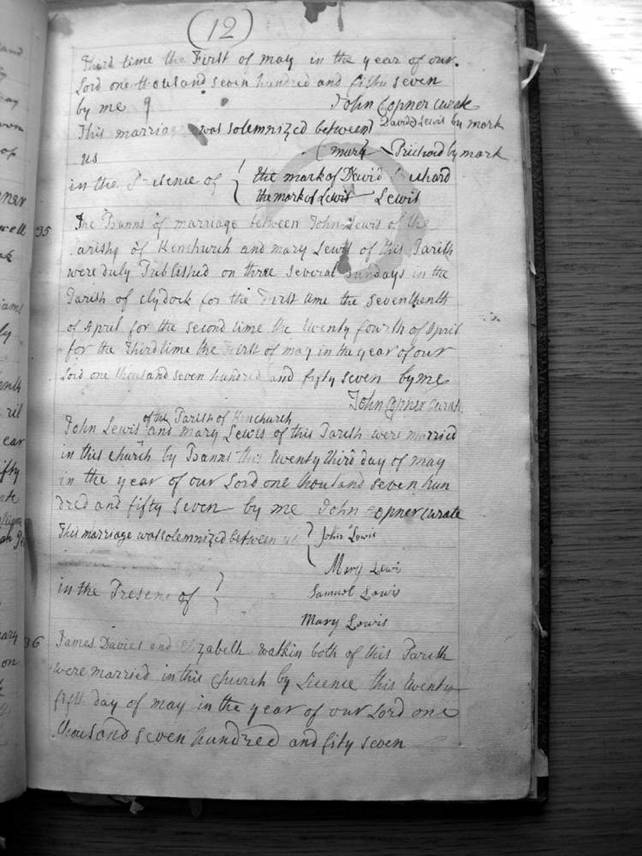 (12)
Third time the First of may in the year of our
Lord one thousand seven hundred and fifty seven
by me John Copner curate
This marriage was solemnized between David Lewis by mark
us mary Prichard by mark
in the Presence of the mark of David Prichard
the mark of Lewis Lewis
35 The Banns of marriage between John Lewis of the
Parish of Kenchurch and mary Lewis of this Parish
were duly Published on three several Sundays in the
Parish of clydock for the First time the seventeenth
of April for the second time the twenty fourth of April
for the Third time the First of may in the year of our
Lord one thousand seven hundred and fifty seven by me
John Copner curate
of the Parish of Kenchurch
John Lewis and mary Lewis of this Parish were married
in this church by Banns this twenty third day of may
in the year of our Lord one thousand seven hun
dred and fifty seven by me John Copner curate
This marriage was solemnized between us John Lewis
Mary Lewis
in the Presenc of Samuel Lewis
Mary Lewis
36 James Davies and Elizabeth watkin both of this Parish
were married in this church by Licence this twenty
fifth day of may in the year of our Lord one
thousand seven hundred and fifty seven